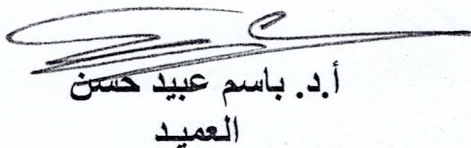 أ.د. باسم عبيد حسن
العميد